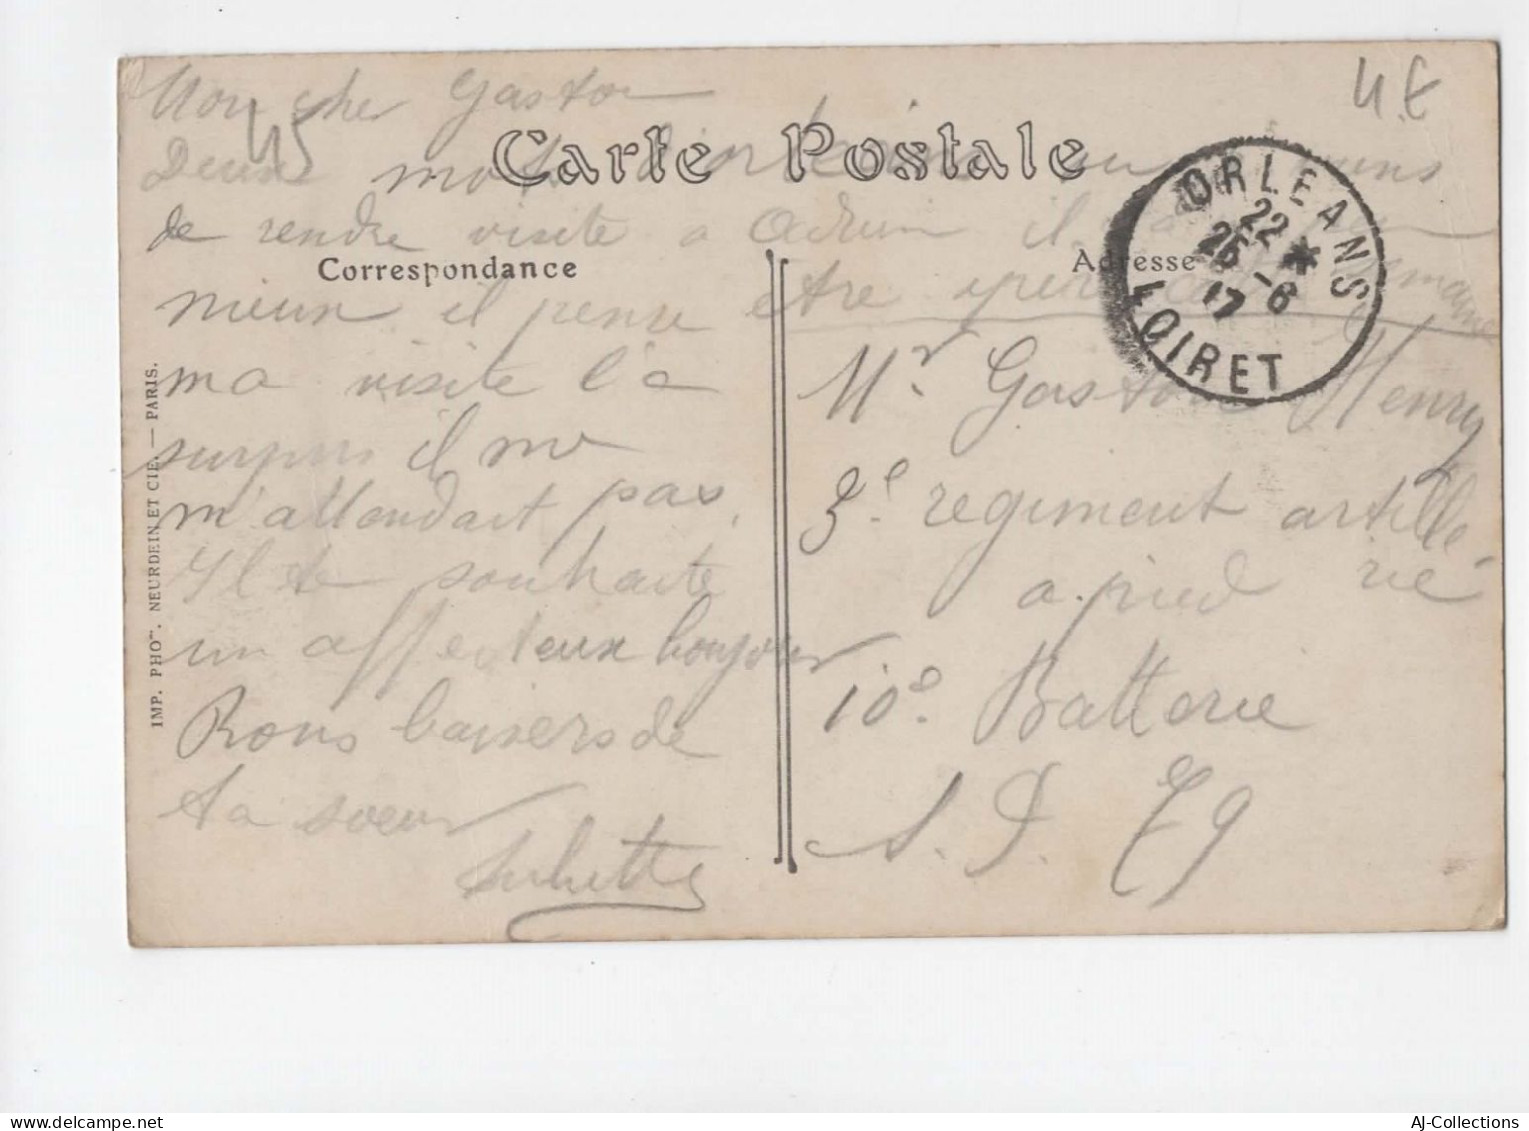 Mon cher Gaston
4 €
45
Carte Postale
Deux mots d'Orléans
de rendre visite a Adrien il
Correspondance
Adresse
mieux il pense etre
ma visite l'a
surpris il ne
m'attendait pas.
Il te souhaite
un affectueux bonjour
Bons baisers de
ta soeur
Juliette
ORLEANS
22 *
25 -6
17
LOIRET
Mr Gaston Henry
3e regiment artille-
rie
a pied
10e Batterie
S. P. 79
IMP. PHOT. NEURDEIN ET CIE. — PARIS.
AJ-Collections